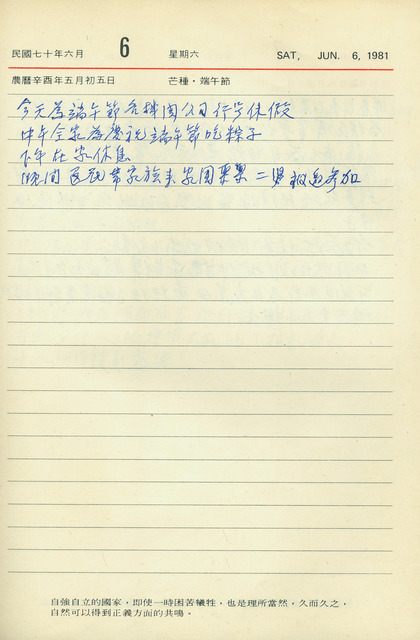 民國七十年六月 6 星期六 SAT, JUN. 6, 1981
農曆辛酉年五月初五日 芒種・端午節
今天為端午節各機関公司行号休假
中午全家為慶祝端午節吃粽子
下午在家休息
晚间 家族来家 二男 参加
自強自立的國家，即使一時困苦犧牲，也是理所當然，久而久之，
自然可以得到正義方面的共鳴。